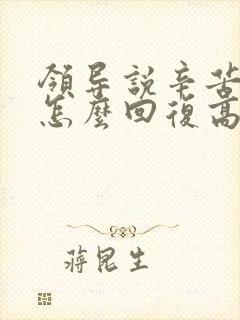 領导說辛苦
怎麼回復高
蔣昆生